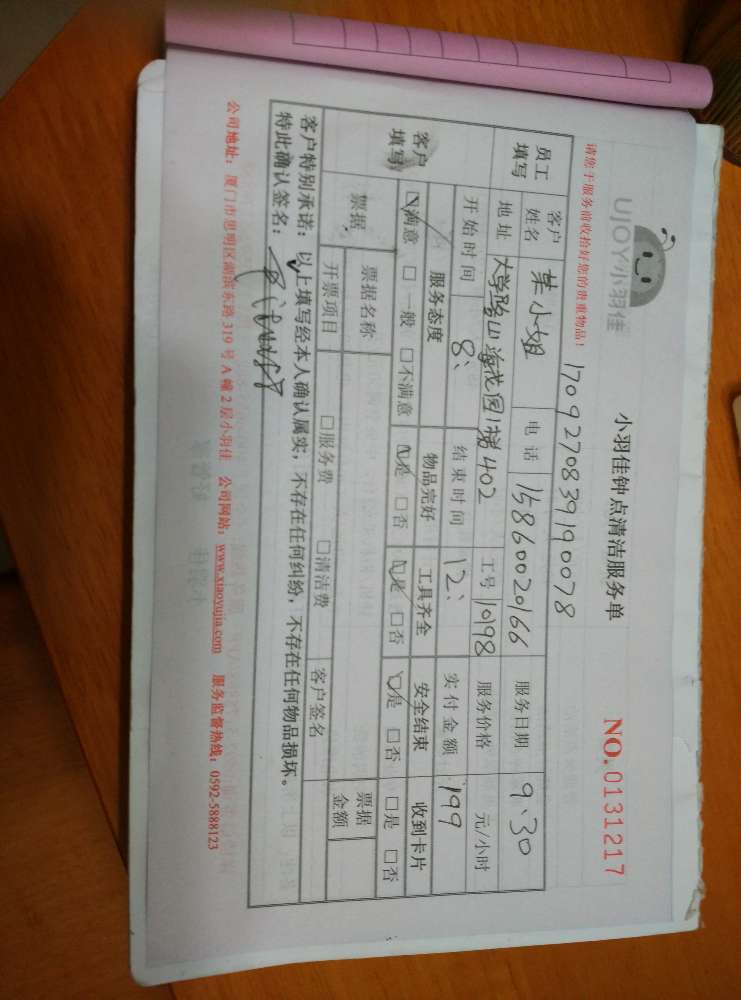 UJOY小羽佳
小羽佳钟点清洁服务单
NO. 0131217
请您于服务前收拾好您的贵重物品!
1709270839190078
员工填写 客户姓名 小姐 电话 15860020166 服务日期 9.30
地址 大学路山海花园1楼402 工号 10198 服务价格 元/小时
开始时间 8: 结束时间 12: 实付金额 199
客户填写 服务态度 物品完好 工具齐全 安全结束 收到卡片
☑满意 □一般 □不满意 ☑是 □否 ☑是 □否 ☑是 □否 □是 □否
票据 票据名称 票据金额
开票项目 □服务费 □清洁费 客户签名
客户特别承诺:以上填写经本人确认属实,不存在任何纠纷,不存在任何物品损坏。
特此确认签名:
公司地址:厦门市思明区湖滨东路319号A幢2层小羽佳 公司网站:www.xiaoyujia.com 服务监督热线:0592-5888123